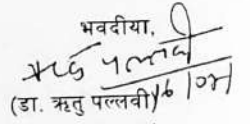 भवदीया,
ऋतु पल्लवी
(डा. ऋतु पल्लवी)